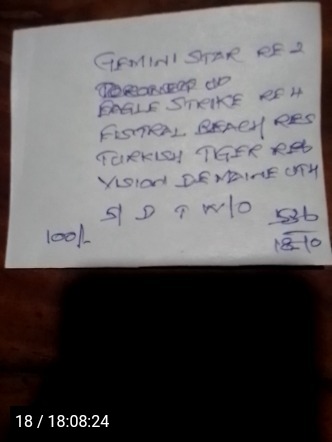 GEMINI STAR RE 2
EAGLE STRIKE RE 4
FISTRAL BEACH RE5
TURKISH TIGER RE6
VISION DE MAINE
S/ D T W/O
536
100/- 18-10
18 / 18:08:24